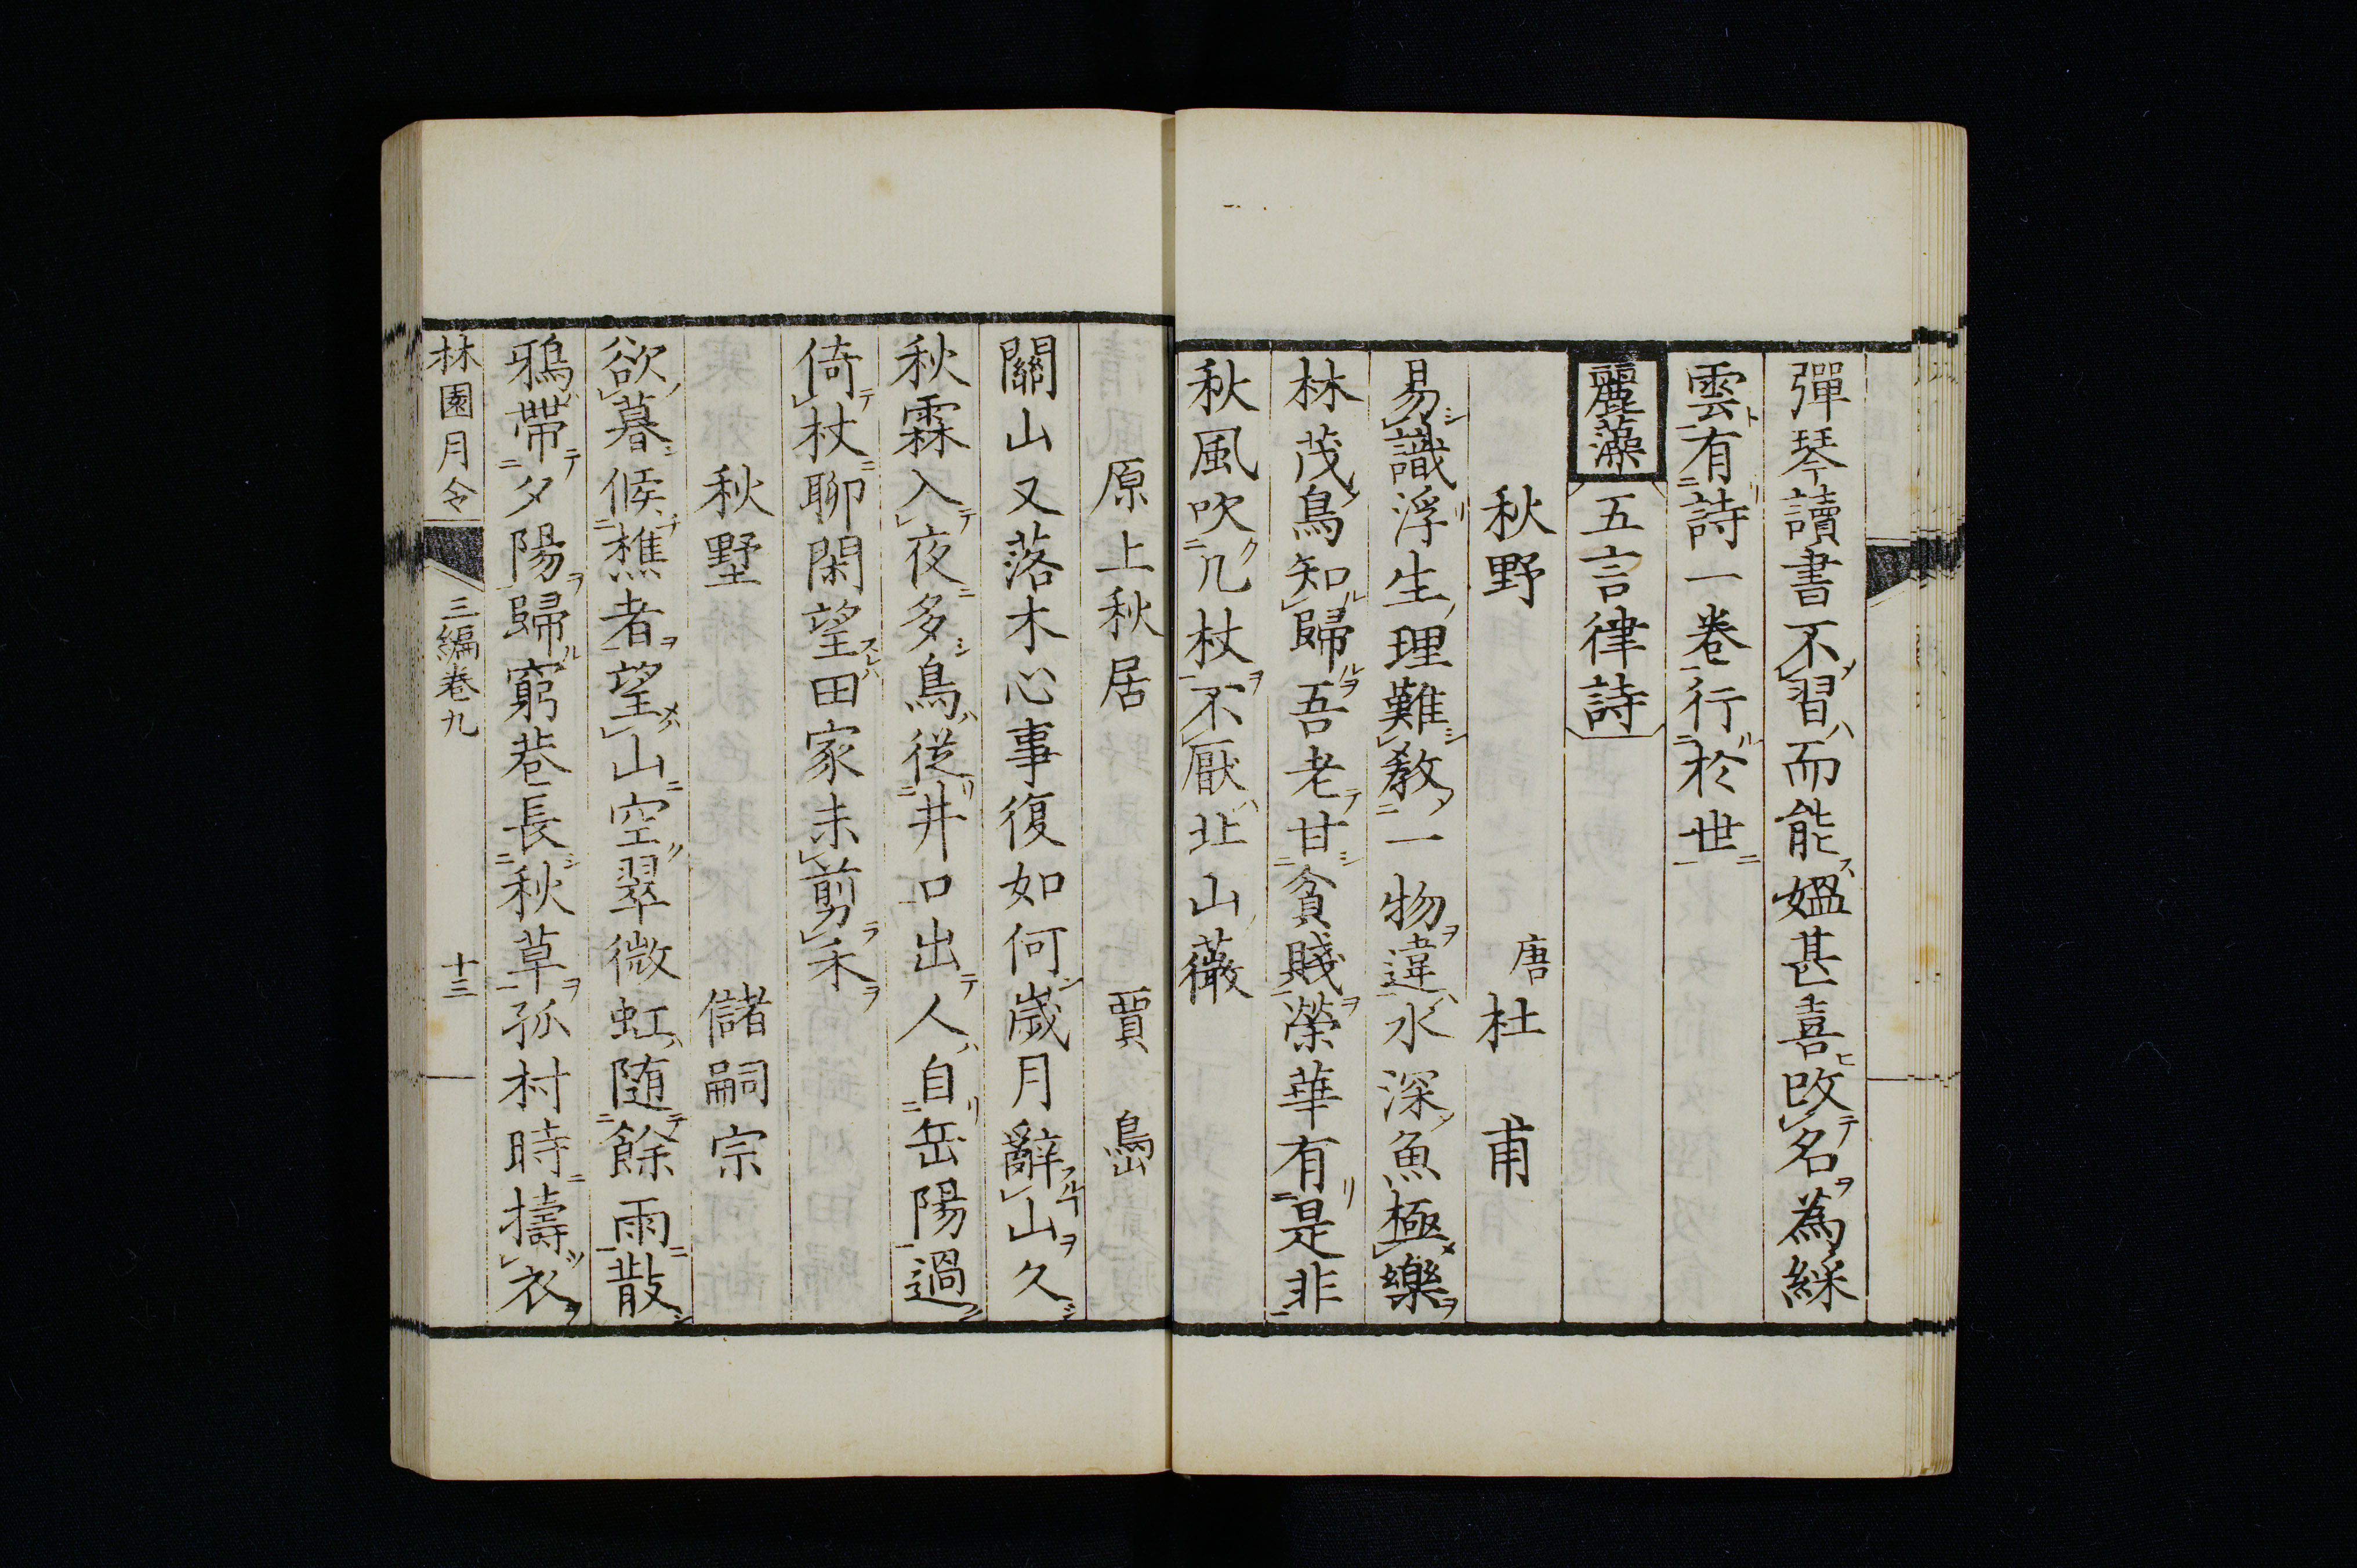 彈琴讀書不習而能媼甚喜改名為綵
雲有詩一卷行於世
麗藻 五言律詩
秋野 唐 杜甫
易識浮生理難教一物違水深魚極樂
林茂鳥知歸吾老甘貧賤榮華有是非
秋風吹几杖不厭北山薇
原上秋居 賈島
關山又落木心事復如何歲月辭山久
秋霖入夜多鳥從井口出人自岳陽過
倚杖聊閑望田家未剪禾
秋墅 儲嗣宗
欲暮候樵者望山空翠微虹随餘雨散
鴉帶夕陽歸窮巷長秋草孤村時擣衣
林園月令 三編卷九 十三